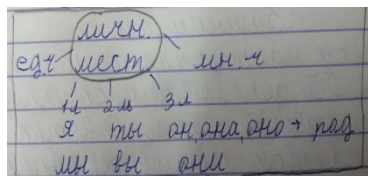 личн.
ед ч мест. мн. ч
1л 2л 3л
я ты он, она, оно + род
мы вы они